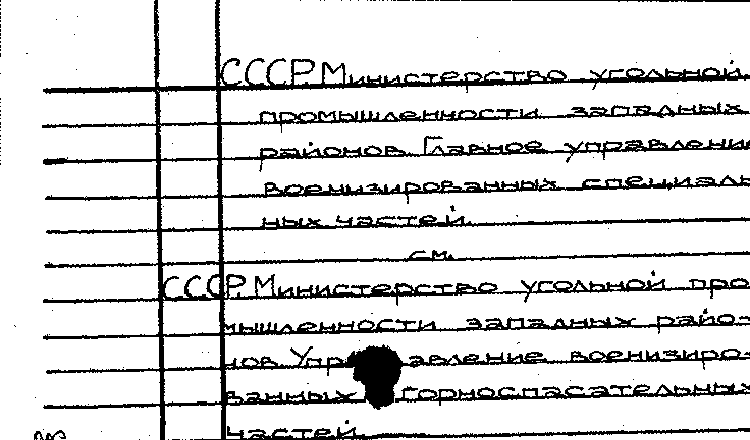 СССР. Министерство угольной
промышленности западных
районов. Главное управление
военизированных специаль-
ных частей.
см.
СССР. Министерство угольной про-
мышленности западных райо-
нов. Управление военизиро-
ванных горноспасательных
частей.